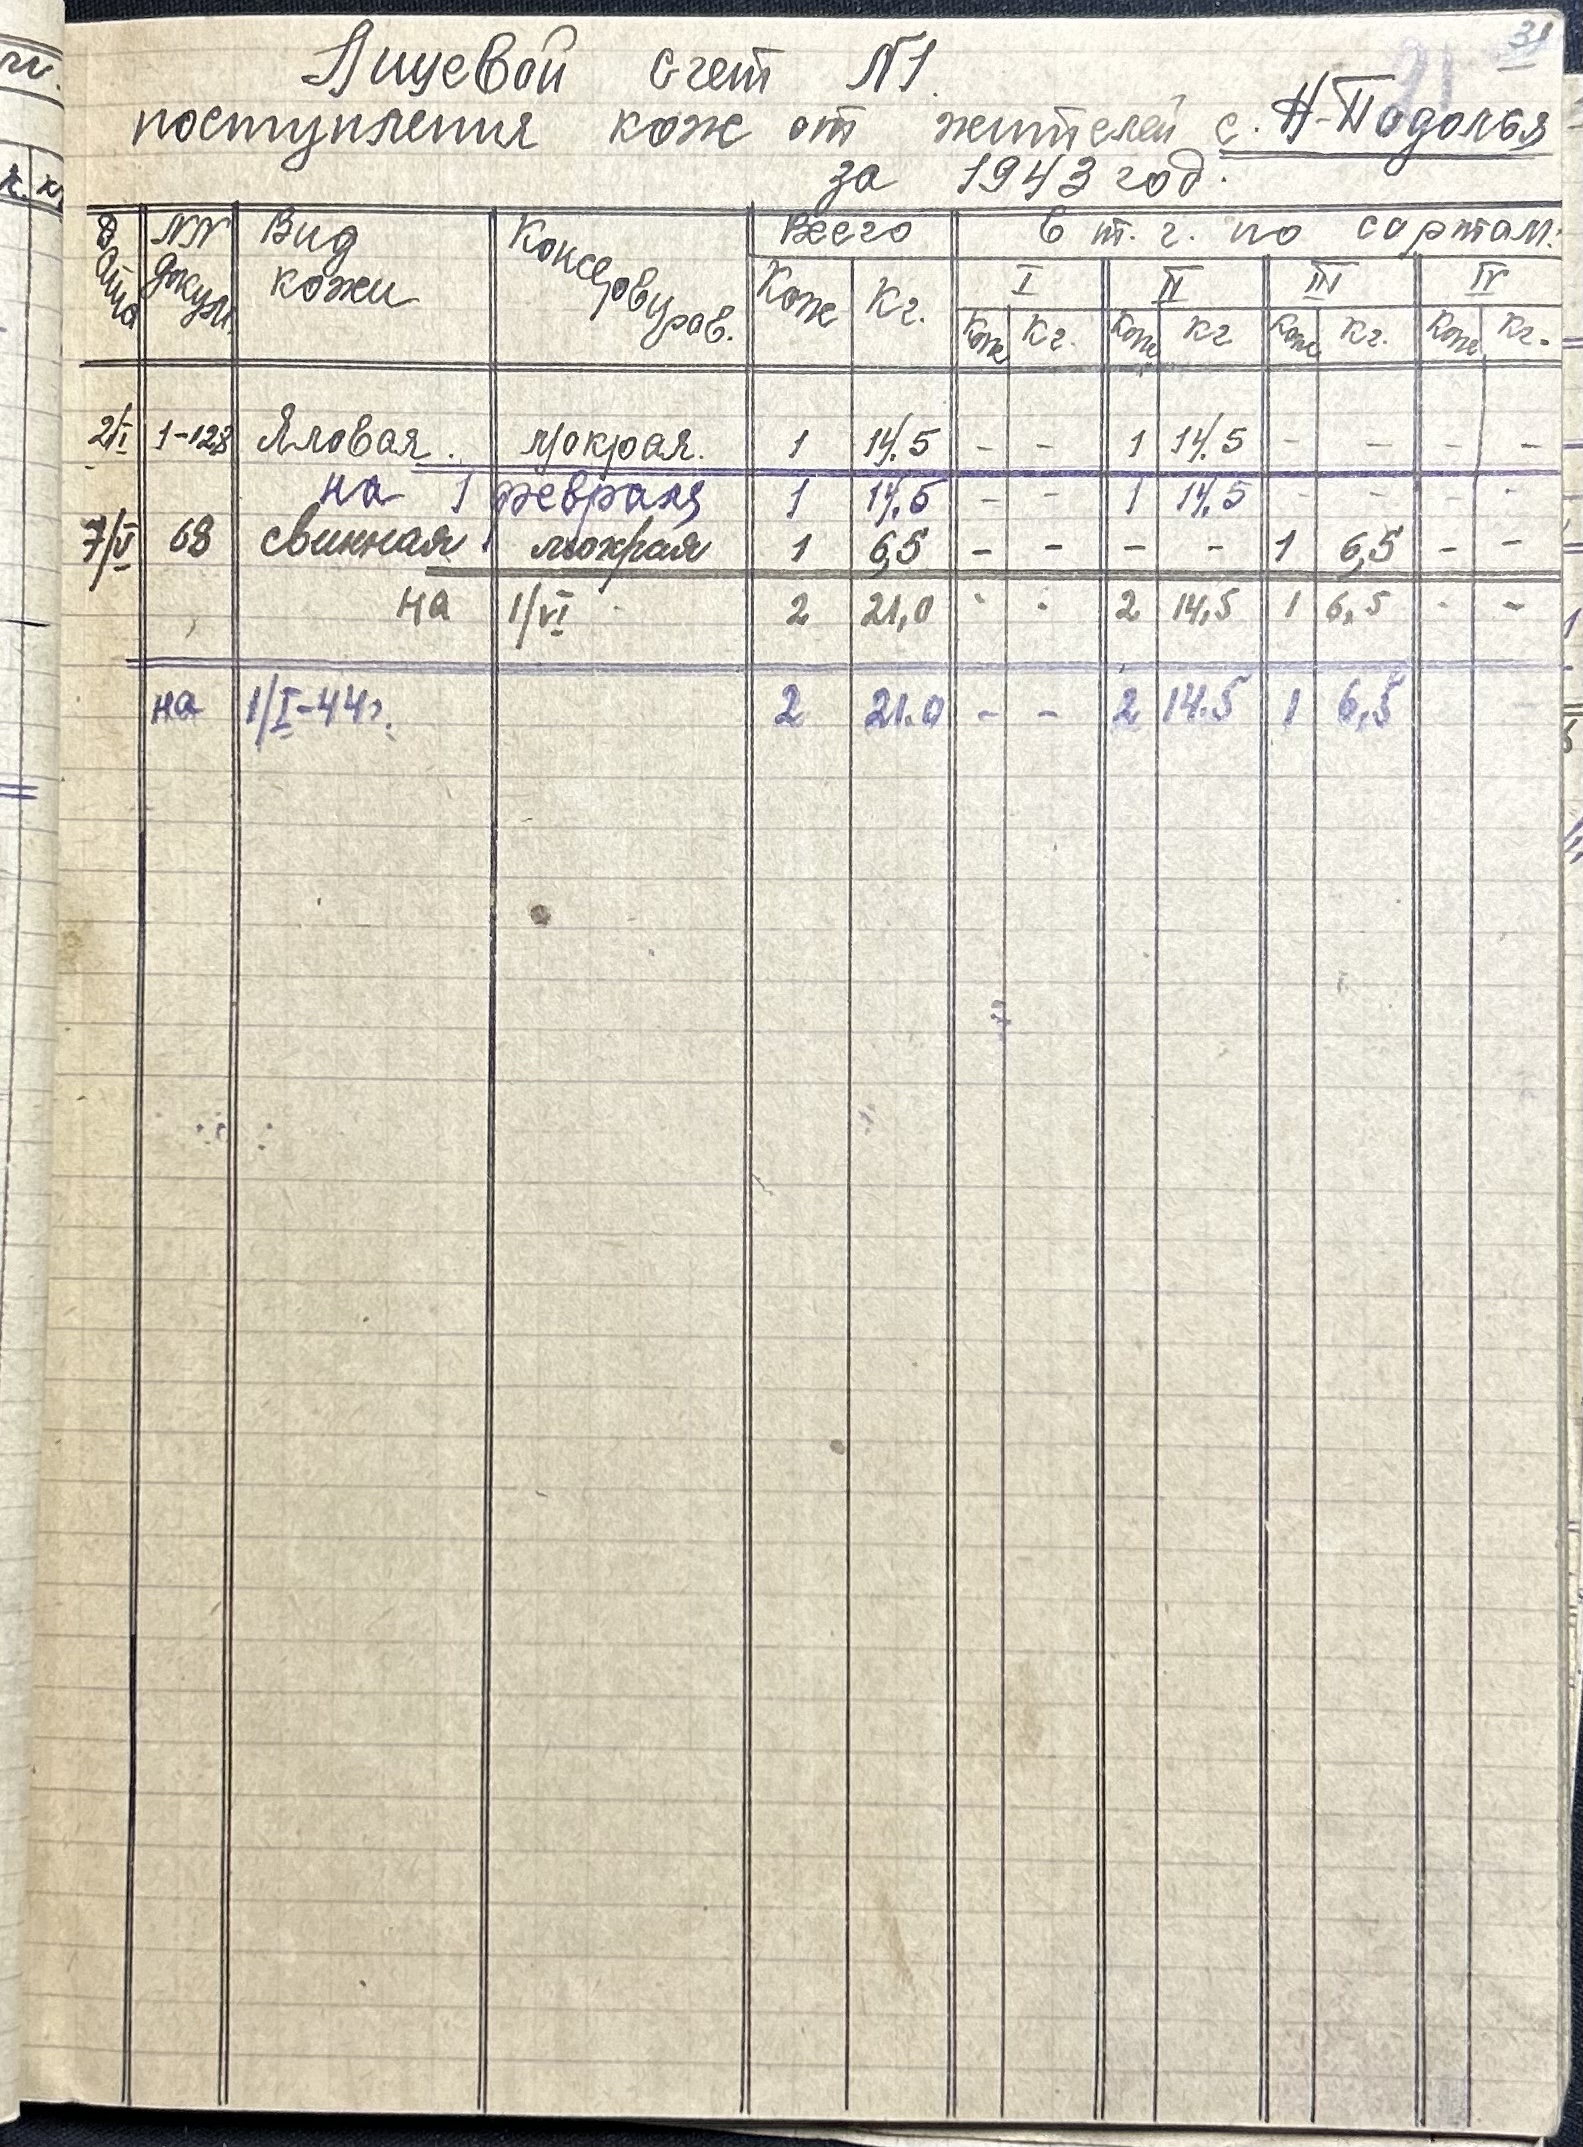 31
Лицевой счет №1.
поступления кож от жителей с. Н-Подолья
за 1943 год.
Дата №№ докум. Вид кожи Консервиров. Всего в т. ч. по сортам:
Кож Кг. I II III IV
Кож Кг. Кож Кг Кож Кг. Кож Кг.
2/I 1-128 Яловая. мокрая. 1 14.5 - - 1 14.5 - - - -
на 1 февраля 1 14.5 - - 1 14.5 - - - -
7/V 68 свинная мокрая 1 6,5 - - - - 1 6,5 - -
на 1/VI 2 21,0 - - 2 14,5 1 6,5 - -
на 1/I-44г. 2 21.0 - - 2 14.5 1 6,5